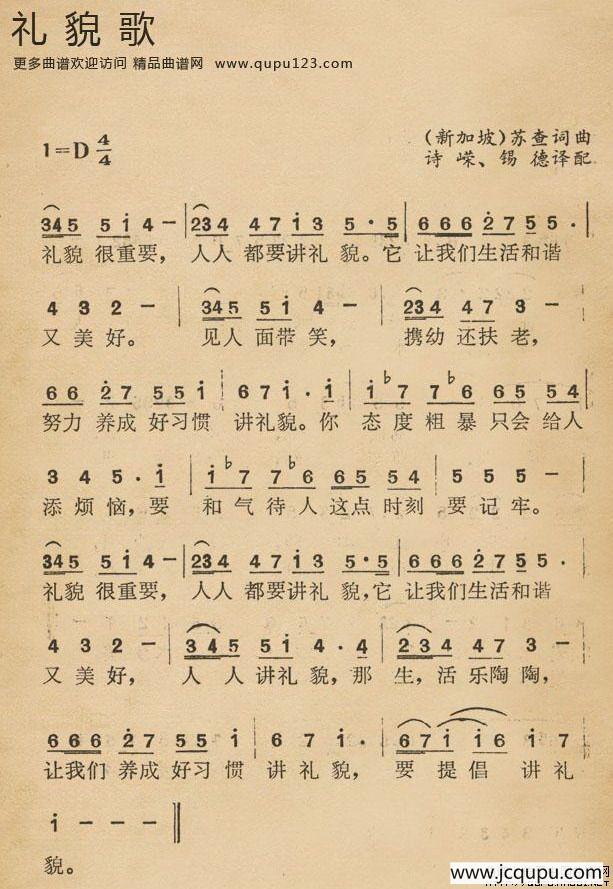 礼貌歌
更多曲谱欢迎访问 精品曲谱网 www.qupu123.com
(新加坡)苏查词曲
1=D 4/4
诗 嵘、锡 德译配
345 5 5 i 4 − | 234 4 7 i 3 5 · 5 | 666 2 7 5 5 ·
礼貌 很重要， 人人 都要讲礼 貌。它 让我们生活和谐
4 3 2 − | 345 5 5 i − | 234 4 7 3 −
又 美 好。 见人 面带 笑， 携幼 还扶 老，
6 6 2 7 5 5 i | 6 7 i · i | i ♭7 7 ♭6 6 5 5 4
努力 养成 好习惯 讲礼貌。你 态 度 粗 暴 只会 给人
3 4 5 · i | i ♭7 7 ♭6 6 5 5 4 | 5 5 5 −
添 烦 恼，要 和 气 待 人 这点 时刻 要 记 牢。
345 5 5 i 4 − | 234 4 7 i 3 5 · 5 | 666 2 7 5 5 ·
礼貌 很重要， 人人 都要讲礼 貌，它 让我们生活和谐
4 3 2 − | 3 4 5 5 5 i 4 · 4 | 2 3 4 4 7 3 −
又 美 好， 人 人 讲礼 貌，那 生，活 乐陶 陶，
6 6 6 2 7 5 5 i | 6 7 i · | 6 7 i i 6 i 7
让我们 养成 好习 惯 讲 礼 貌， 要 提 倡 讲 礼
i − − − ‖
貌。
www.jcqupu.com